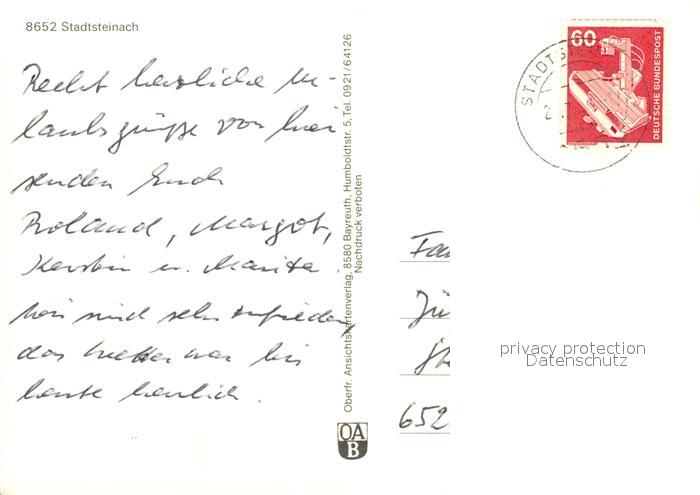 8652 Stadtsteinach
Recht herzliche Ur-
laubsgrüße von hier
senden Euch
Roland, Margot,
Kerstin u. Marita
wir sind sehr zufrieden
das Wetter war bis
heute herrlich.
Oberfr. Ansichtskartenverlag, 8580 Bayreuth, Humboldtstr. 5, Tel. 0921/64126
Nachdruck verboten
OA
B
60
DEUTSCHE BUNDESPOST
STADTS
Fa
Jü
652
privacy protection
Datenschutz